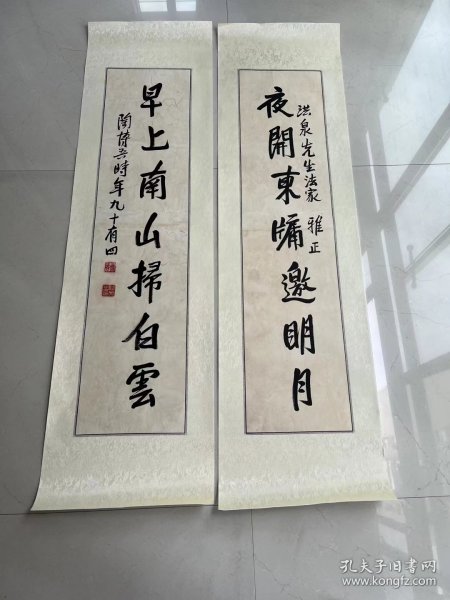 夜開東牖邀明月
洪泉先生法家 雅正
早上南山掃白雲
陶博吾時年九十有四
孔夫子旧书网
www.kongfz.com